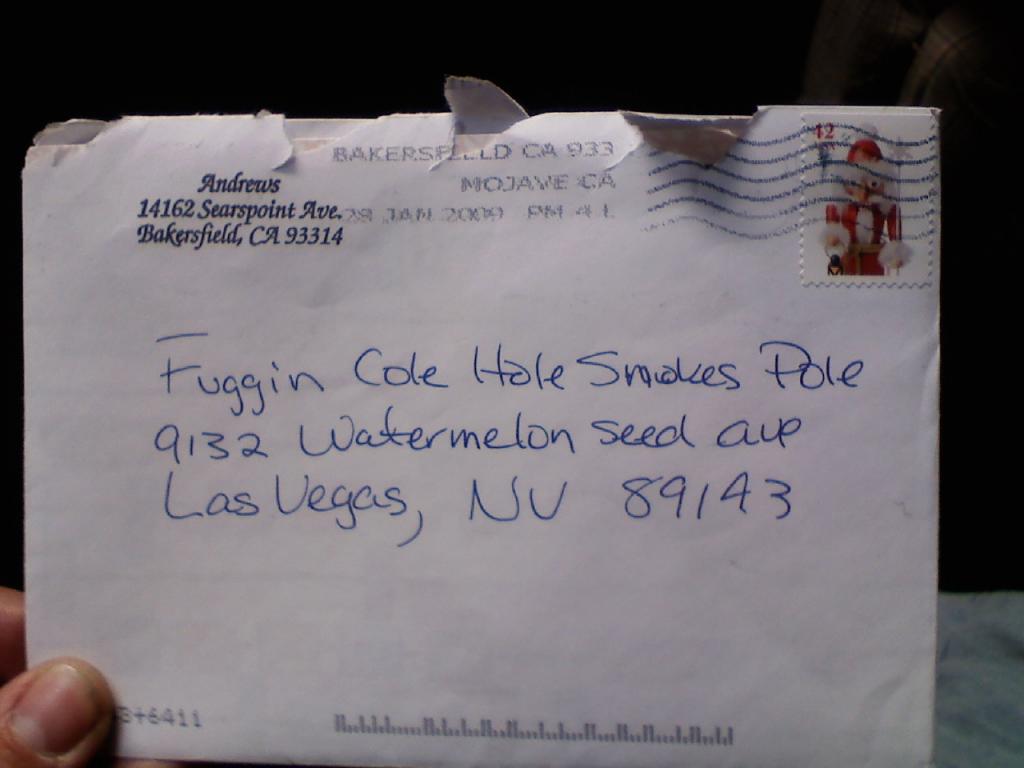 BAKERSFIELD CA 933
MOJAVE CA
28 JAN 2009 PM 4 L
42
Andrews
14162 Searspoint Ave.
Bakersfield, CA 93314
Fuggin Cole Hole Smokes Pole
9132 Watermelon seed ave
Las Vegas, NV 89143
3+6411